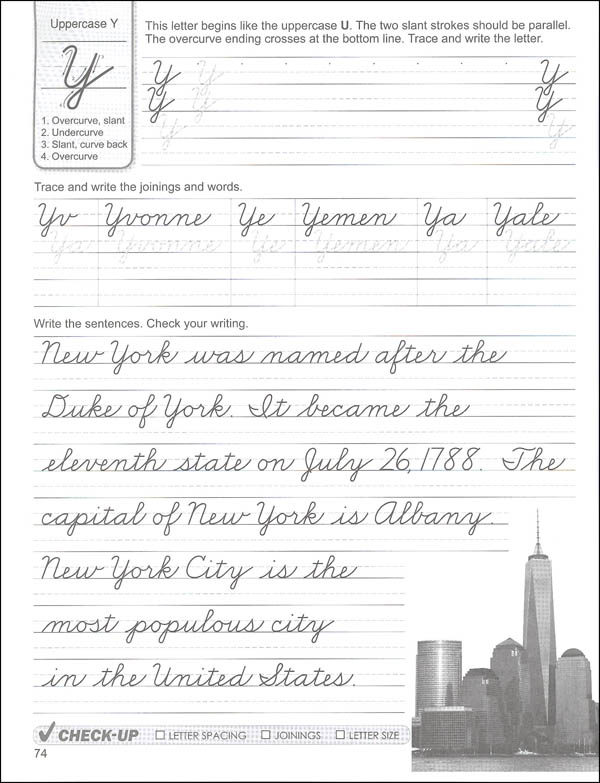 Uppercase Y
This letter begins like the uppercase U. The two slant strokes should be parallel.
The overcurve ending crosses at the bottom line. Trace and write the letter.
Y
Y Y Y
Y Y Y
Y Y
1. Overcurve, slant
2. Undercurve
3. Slant, curve back
4. Overcurve
Trace and write the joinings and words.
Yv Yvonne Ye Yemen Ya Yale
Ya Yvonne Ye Yemen Ya Yale
Write the sentences. Check your writing.
New York was named after the
Duke of York. It became the
eleventh state on July 26, 1788. The
capital of New York is Albany.
New York City is the
most populous city
in the United States.
CHECK-UP LETTER SPACING JOININGS LETTER SIZE
74